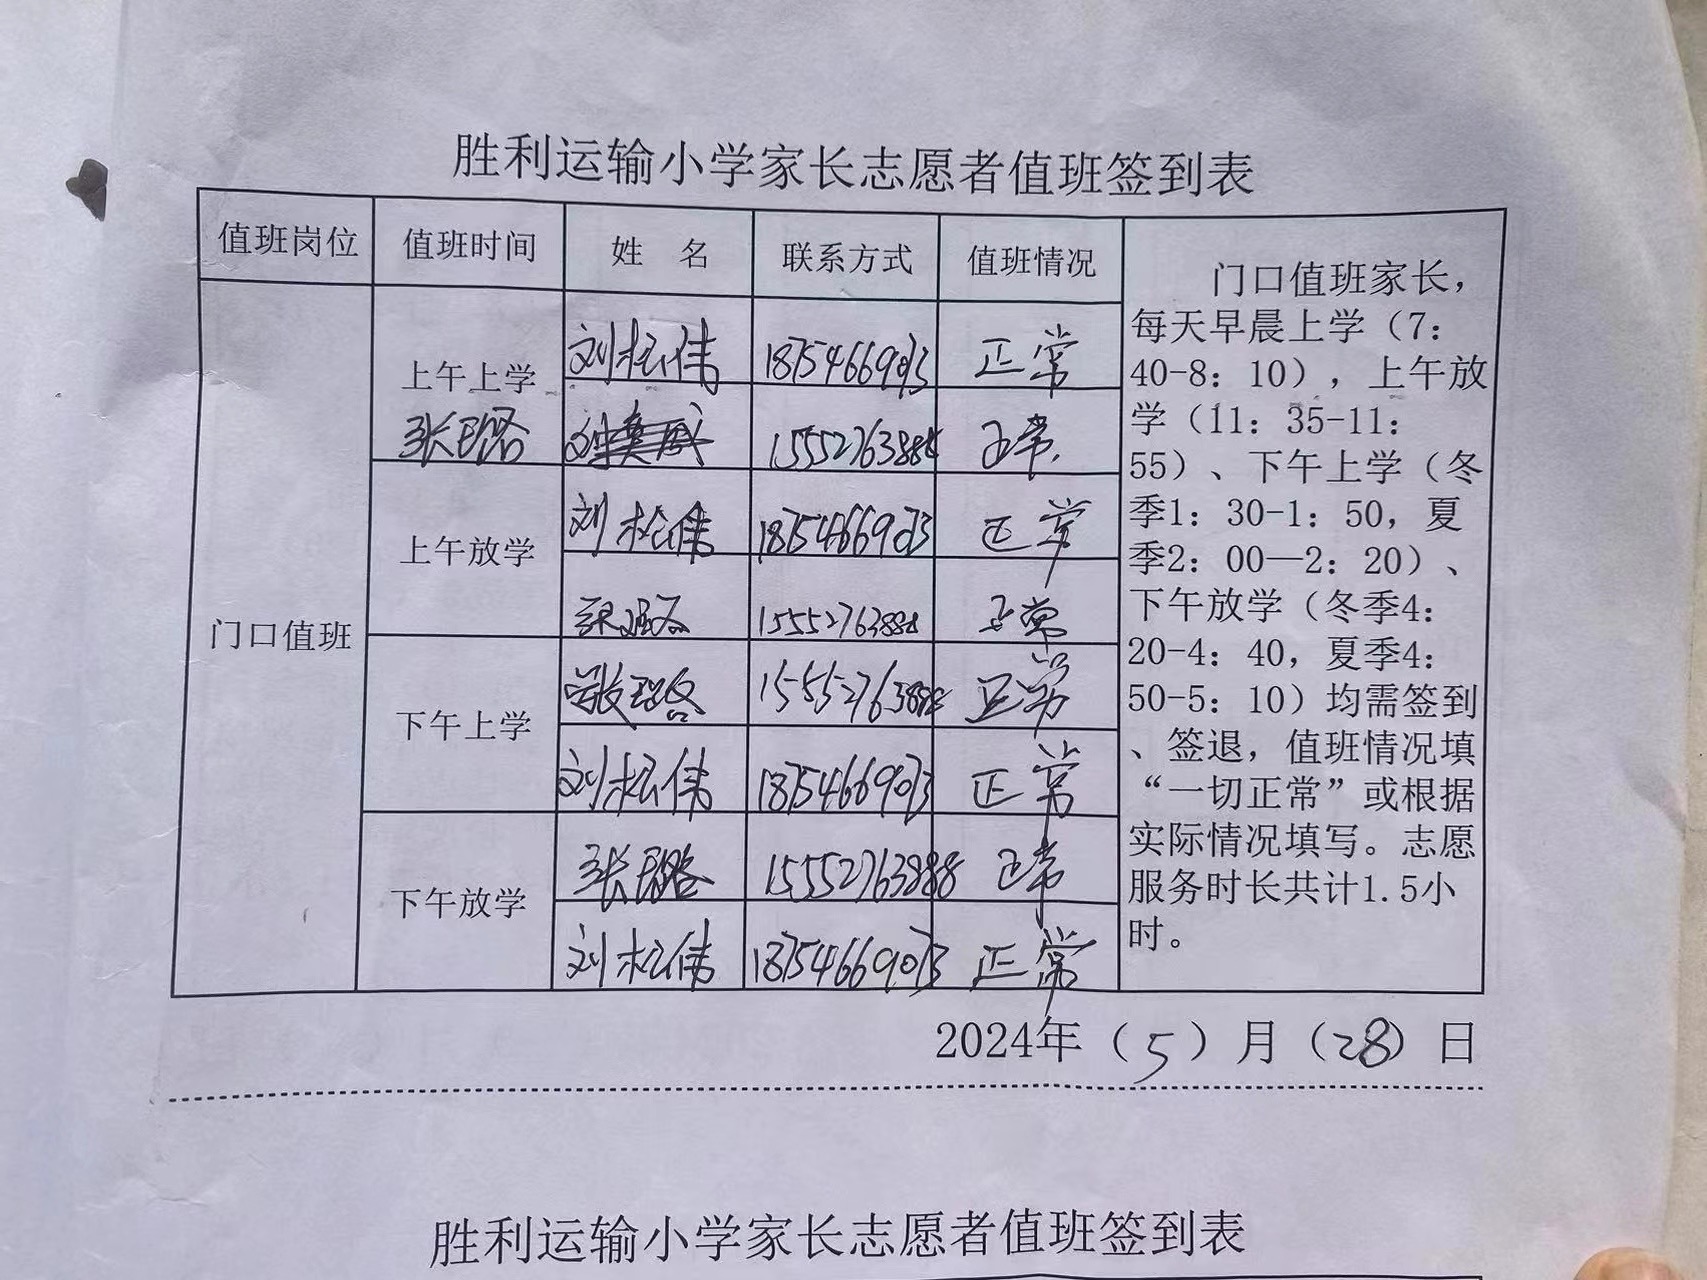 胜利运输小学家长志愿者值班签到表
值班岗位 值班时间 姓 名 联系方式 值班情况
门口值班家长，
每天早晨上学（7：
40-8：10），上午放
学（11：35-11：
55）、下午上学（冬
季1：30-1：50，夏
季2：00—2：20）、
下午放学（冬季4：
20-4：40，夏季4：
50-5：10）均需签到
、签退，值班情况填
“一切正常”或根据
实际情况填写。志愿
服务时长共计1.5小
时。
门口值班
上午上学
刘松伟 18754669073 正常
张珺铭 15552763888 正常
上午放学
刘松伟 18754669073 正常
15552763888 正常
下午上学
15552763888 正常
刘松伟 18754669073 正常
下午放学
15552763888 正常
刘松伟 18754669073 正常
2024年（5）月（28）日
胜利运输小学家长志愿者值班签到表